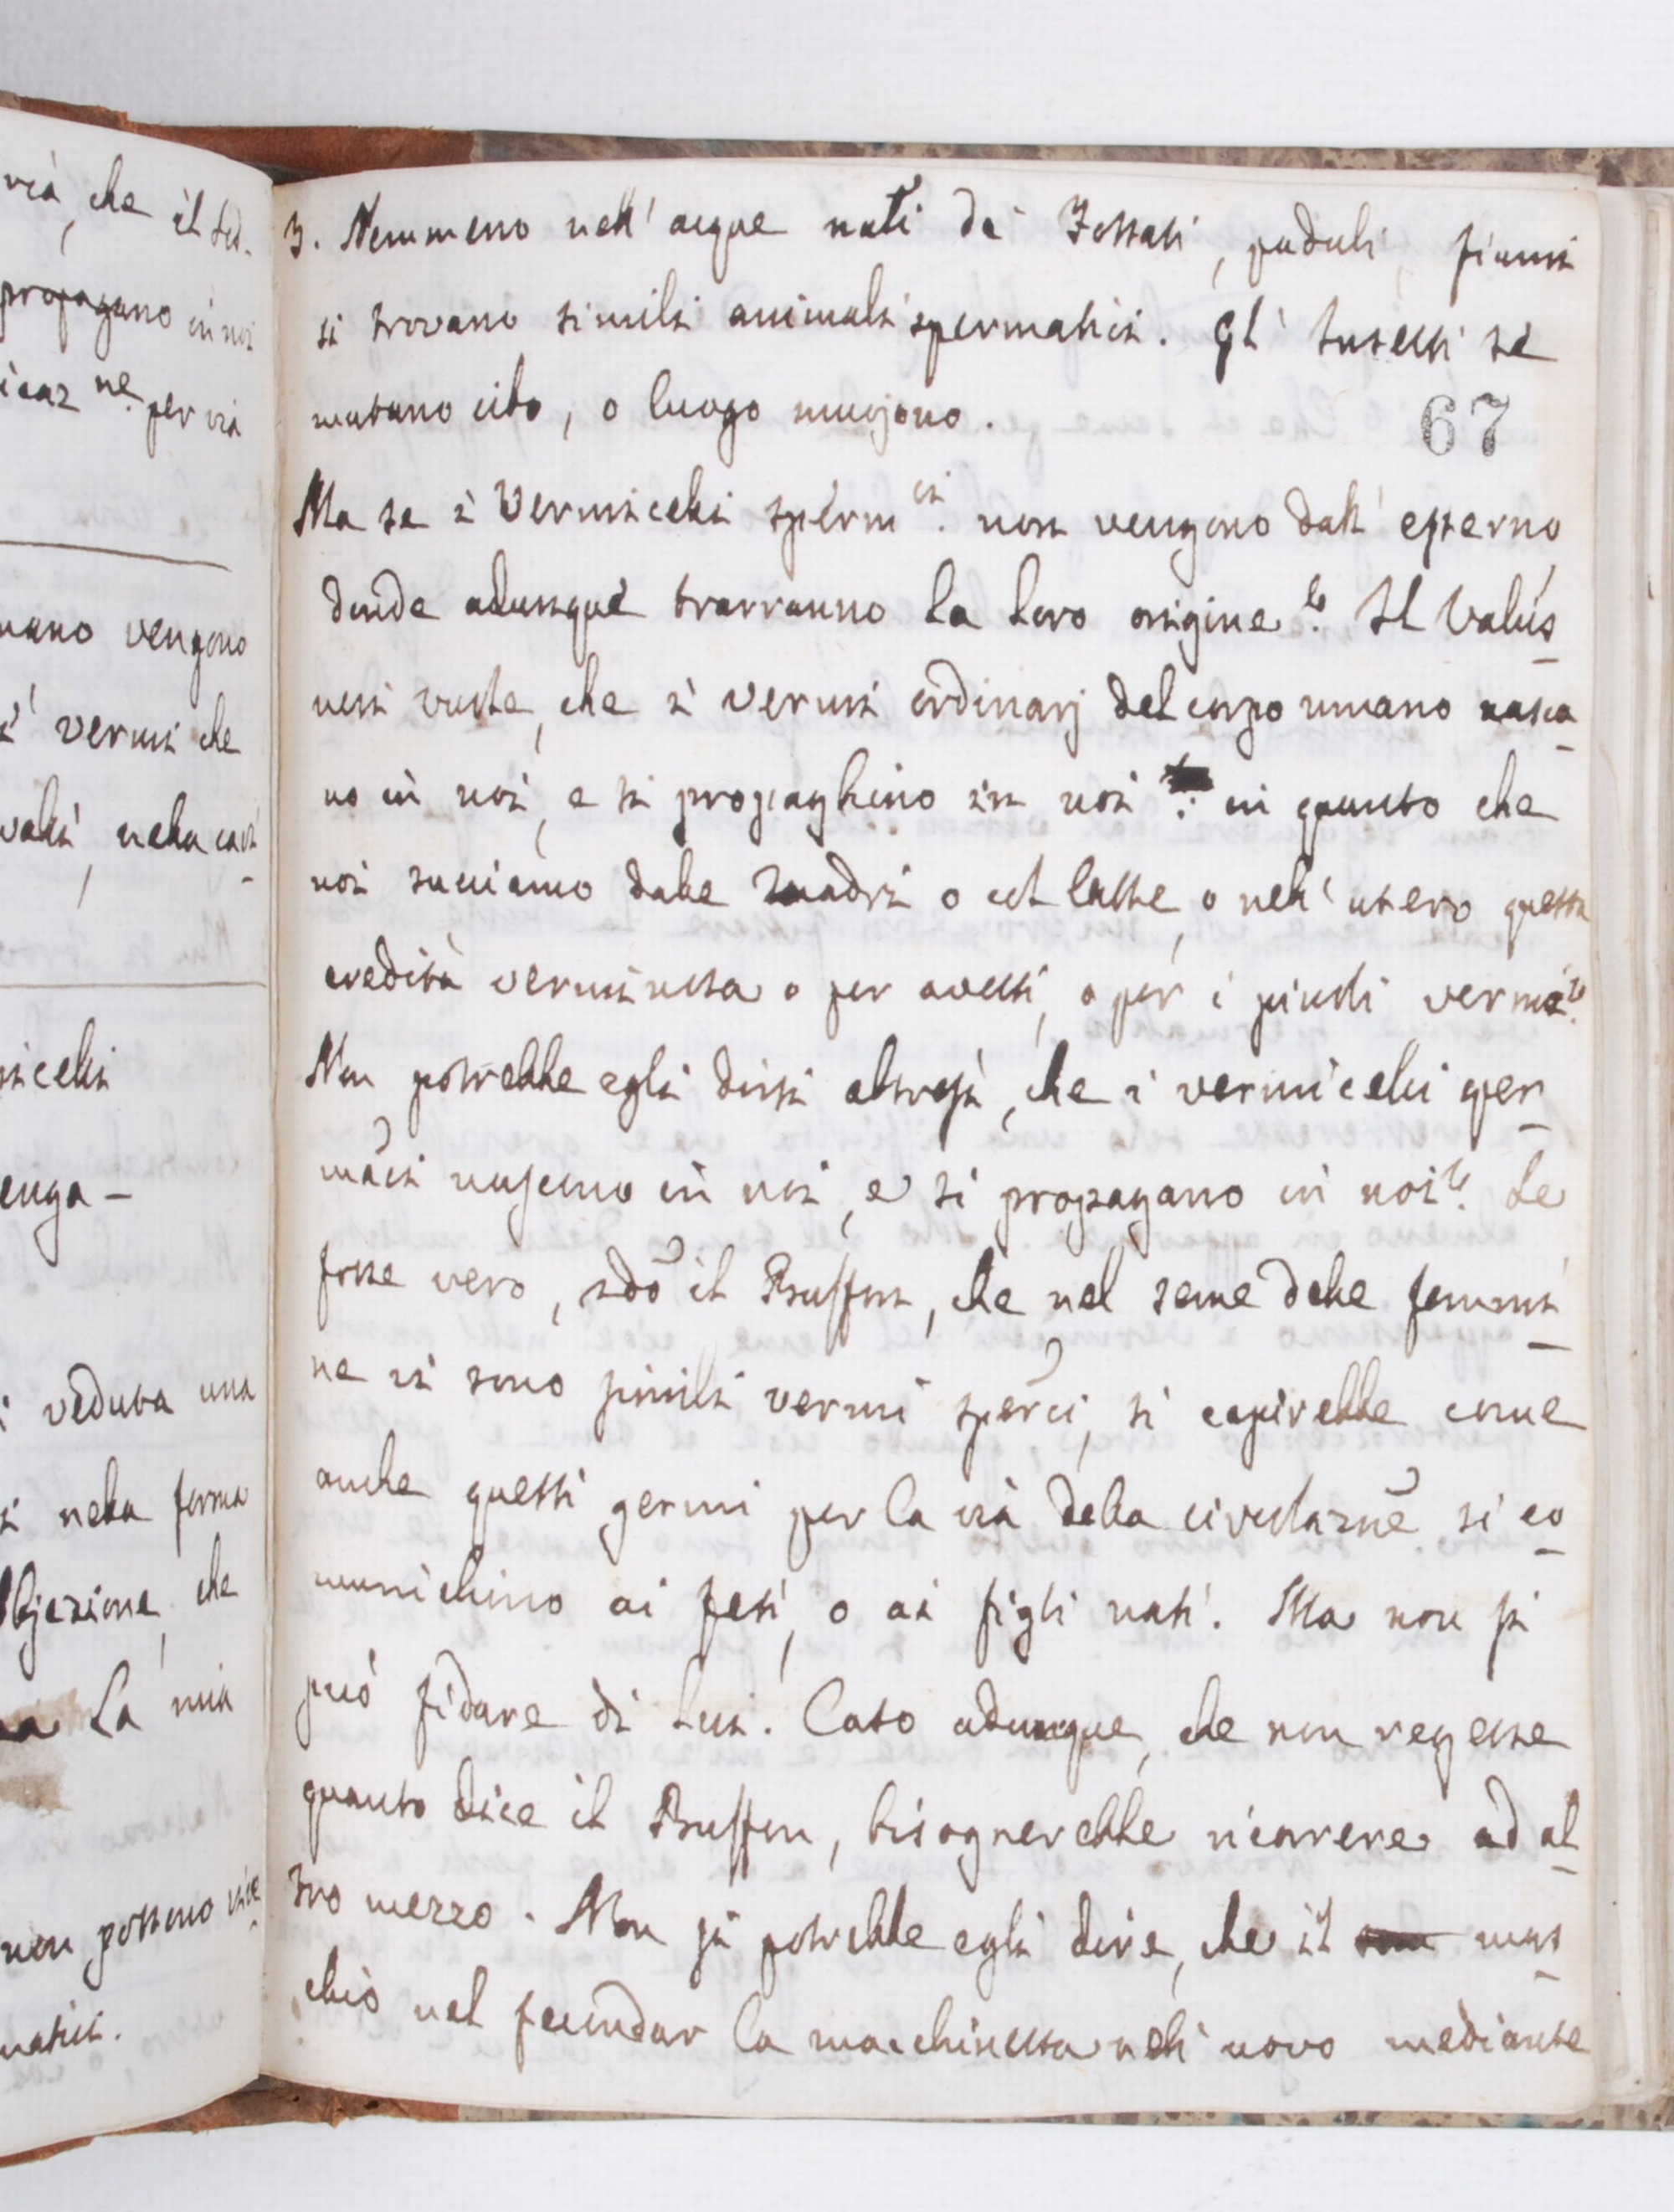 3. Nemmeno nell' acque nati de' Fossati, paduli, fiumi
si trovano simili animali spermatici. Gl' Insetti se
mutano cibo, o luogo muojono.
67
Ma se i Vermicelli sperm.ci non vengono dall' esterno
donde adunque trarranno la loro origine? Il Valis
neri vuole, che i vermi ordinarj del corpo umano nasca
no in noi, e si propaghino in noi in quanto che
noi succiamo dalle madri o col latte, o nell' utero questa
eredità verminosa o per ovetti, o per i piccoli vermi?
Non potrebbe egli dirsi altresì, che i vermicelli sper
mãci nascano in noi, e si propagano in noi? Se
fosse vero, sdo il Buffon, che nel seme delle femmi
ne vi sono simili vermi sperci, si capirebbe come
anche questi germi per la via della circolazne si co
munichino ai feti, o ai figli nati. Ma non si
può fidare di lui. Caso adunque, che non regesse
quanto dice il Buffon, bisognerebbe ricorrere ad al
tro mezzo. Non si potrebbe egli dire, che il mas
chio nel fecondar la macchinetta nell' uovo mediante
via, che il
propagano in noi
per via
mano vengono
i vermi che
nella cavi
micelli
enga-
veduta una
nella forma
bjezione, che
La mia
non possono
matici.